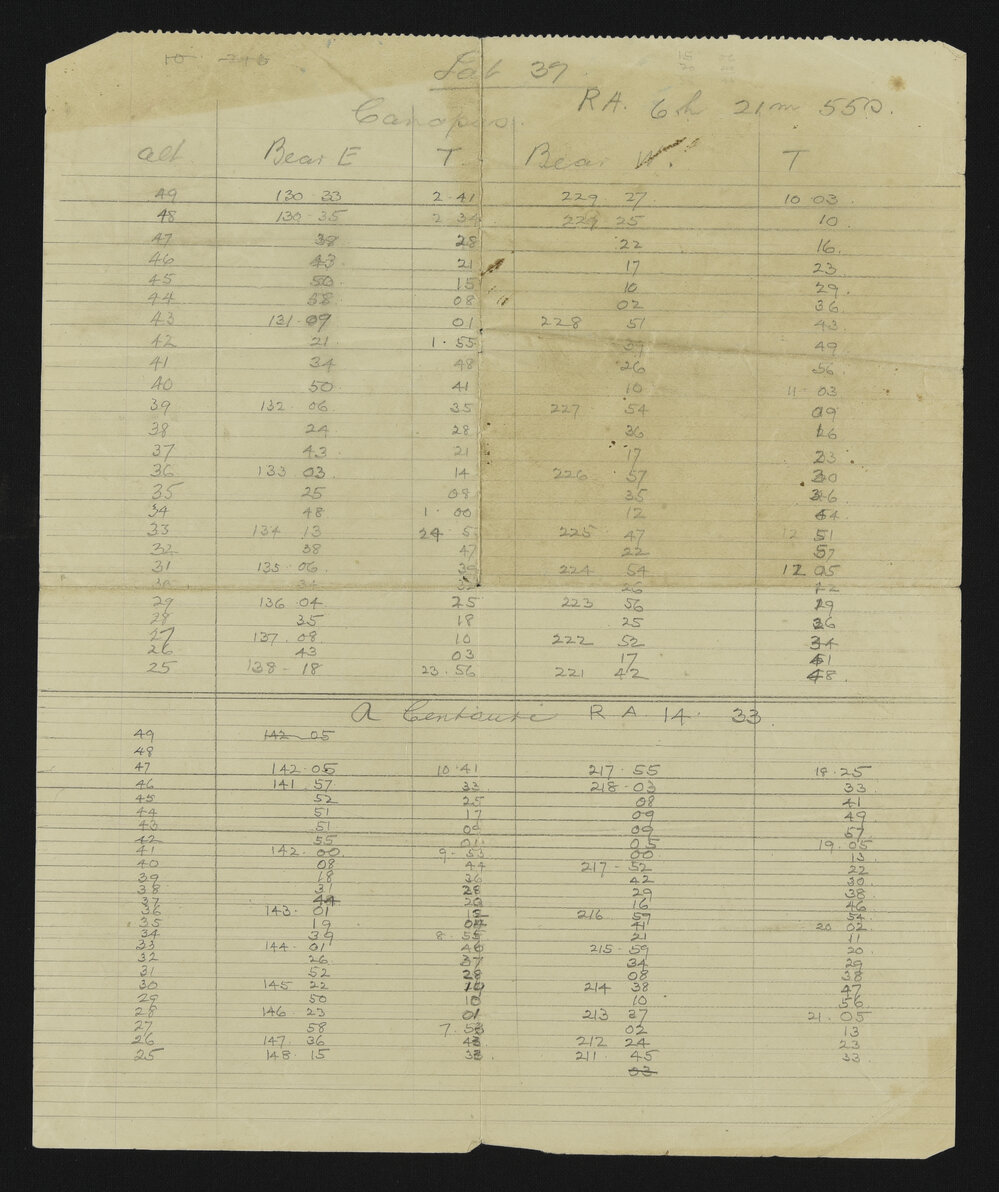 Lat 37
RA. 6h 21m 55s.
Canopus.
alt Bear E T Bear W. T
49 130 33 2·41 229 27 10 03
48 130·35 2 34 229 25 10
47 39 28 22 16
46 43 21 17 23
45 50 15 10 29
44 58 08 02 36
43 131·09 01 228 51 43
42 21 1·55 39 49
41 34 48 26 56
40 50 41 10 11 03
39 132·06 35 227 54 09
38 24 28 36 16
37 43 21 17 23
36 133 03 14 226 57 30
35 25 08 35 36
34 48 1·00 12 44
33 134 13 24 5 225 47 12 51
32 38 47 22 57
31 135·06 39 224 54 12 05
30 34 32 26 12
29 136 04 25 223 56 19
28 35 18 25 26
27 137·08 10 222 52 34
26 43 03 17 41
25 138-18 23·56 221 42 48
A Centauri R A. 14· 33
49 142-05
48
47 142·05 10·41 217·55 18·25
46 141 57 33 218·03 33
45 52 25 08 41
44 51 17 09 49
43 51 09 09 57
42 55 01 05 19·05
41 142·00 9·53 00 13
40 08 44 217-52 22
39 18 36 42 30
38 31 28 29 38
37 44 20 16 46
36 143·01 12 216 57 54
35 19 04 41 20 02
34 39 8·55 21 11
33 144·01 46 215-59 20
32 26 37 34 29
31 52 28 08 38
30 145 22 19 214 38 47
29 50 10 10 56
28 146·23 01 213 37 21·05
27 58 7·53 02 13
26 147·36 43 212 24 23
25 148·15 33 211·45 33
03